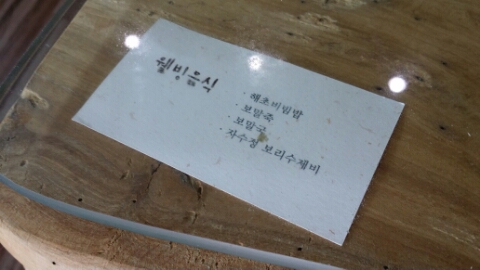 웰빙음식
· 해초비빔밥
· 보말죽
· 보말국
· 자수정 보리수제비